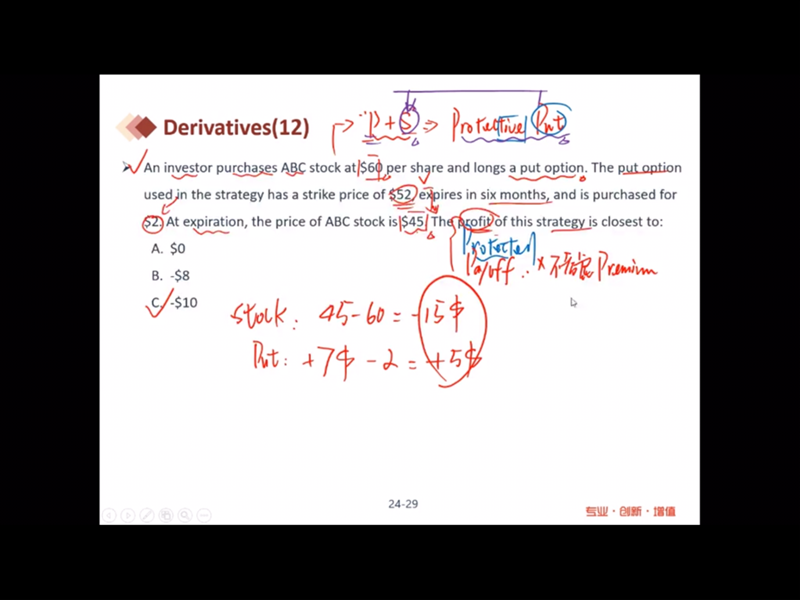 "P + S ⇒ Protective Put
Derivatives(12)
An investor purchases ABC stock at $60 per share and longs a put option. The put option
used in the strategy has a strike price of $52, expires in six months, and is purchased for
$2. At expiration, the price of ABC stock is $45. The profit of this strategy is closest to:
A. $0
Protected
B. -$8
Payoff: × 不考虑 Premium
C. -$10
Stock: 45-60 = -15$
Put: +7$ -2 = +5$
24-29
专业·创新·增值